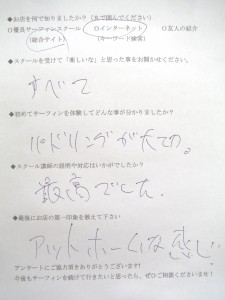 ◆お店を何で知りましたか？（丸で囲んでください）
○優良サーフィンスクール ○インターネット ○友人の紹介
（総合サイト） （キーワード検索）
◆スクールを受けて「楽しいな」と思った事をお聞かせください。
すべて
◆初めてサーフィンを体験してどんな事が分かりましたか？
パドリングが大事。
◆スクール講師の説明や対応はいかがでしたか？
最高でした。
◆最後にお店の第一印象を教えて下さい
アットホームな感じ
アンケートにご協力頂きありがとうございます！
今後もサーフィンを続けて行きたいと思ったら、ぜひご相談くださいませ！